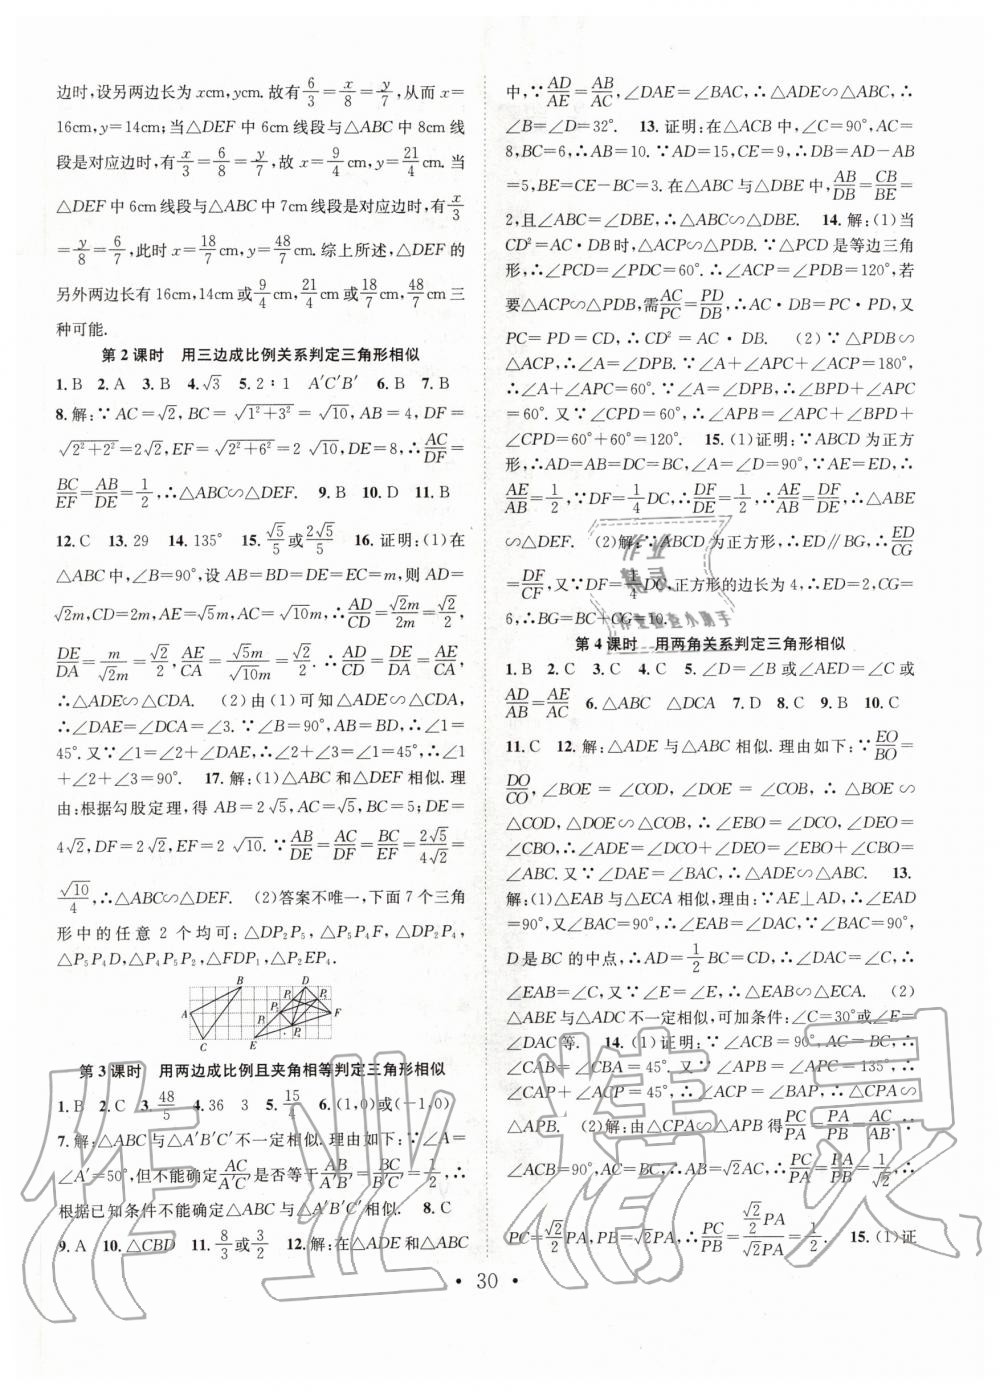 边时,设另两边长为 xcm,ycm. 故有 6/3 = x/8 = y/7,从而 x=
16cm,y=14cm;当△DEF 中 6cm 线段与△ABC 中 8cm 线
段是对应边时,有 x/3 = 6/8 = y/7,故 x= 9/4 cm,y= 21/4 cm. 当
△DEF 中 6cm 线段与△ABC 中 7cm 线段是对应边时,有 x/3
= y/8 = 6/7,此时 x= 18/7 cm,y= 48/7 cm. 综上所述,△DEF 的
另外两边长有 16cm,14cm 或 9/4 cm, 21/4 cm 或 18/7 cm, 48/7 cm 三
种可能.
第 2 课时 用三边成比例关系判定三角形相似
1. B 2. A 3. B 4. √3 5. 2∶1 A′C′B′ 6. B 7. B
8. 解:∵AC=√2,BC=√(1²+3²)=√10,AB=4,DF=
√(2²+2²)=2√2,EF=√(2²+6²)=2√10,DE=8,∴AC/DF=
BC/EF=AB/DE=1/2,∴△ABC∽△DEF. 9. B 10. D 11. B
12. C 13. 29 14. 135° 15. √5/5 或 2√5/5 16. 证明:(1)在
△ABC 中,∠B=90°,设 AB=BD=DE=EC=m,则 AD=
√2m,CD=2m,AE=√5m,AC=√10m,∴AD/CD=√2m/2m=√2/2,
DE/DA=m/√2m=√2/2,AE/CA=√5m/√10m=√2/2. ∴AD/CD=DE/DA=AE/CA,
∴△ADE∽△CDA. (2)由(1)可知△ADE∽△CDA,
∴∠DAE=∠DCA=∠3. ∵∠B=90°,AB=BD,∴∠1=
45°. 又∵∠1=∠2+∠DAE,∴∠2+∠3=∠1=45°,∴∠1
+∠2+∠3=90°. 17. 解:(1)△ABC 和△DEF 相似. 理
由:根据勾股定理,得 AB=2√5,AC=√5,BC=5;DE=
4√2,DF=2√2,EF=2√10. ∵AB/DE=AC/DF=BC/EF=2√5/4√2=
√10/4,∴△ABC∽△DEF. (2)答案不唯一,下面 7 个三角
形中的任意 2 个均可:△DP₂P₅,△P₅P₄F,△DP₂P₄,
△P₅P₄D,△P₄P₅P₂,△FDP₁,△P₂EP₄.
A B C D E F
第 3 课时 用两边成比例且夹角相等判定三角形相似
1. B 2. C 3. 48/5 4. 36 3 5. 15/4 6. (1,0)或(-1,0)
7. 解:△ABC 与△A′B′C′不一定相似. 理由如下:∵∠A=
∠A′=50°,但不能确定 AC/A′C′是否等于 AB/A′B′或 BC/B′C′,∴
根据已知条件不能确定△ABC 与△A′B′C′相似. 8. C
9. A 10. △CBD 11. 8/3 或 3/2 12. 解:在△ADE 和△ABC
中,∵AD/AE=AB/AC,∠DAE=∠BAC,∴△ADE∽△ABC,∴
∠B=∠D=32°. 13. 证明:在△ACB 中,∠C=90°,AC=
8,BC=6,∴AB=10. ∵AD=15,CE=9,∴DB=AD-AB
=5,BE=CE-BC=3. 在△ABC 与△DBE 中,AB/DB=CB/BE=
2,且∠ABC=∠DBE,∴△ABC∽△DBE. 14. 解:(1)当
CD²=AC·DB 时,△ACP∽△PDB. ∵△PCD 是等边三角
形,∴∠PCD=∠PDC=60°. ∴∠ACP=∠PDB=120°,若
要△ACP∽△PDB,需 AC/PC=PD/DB,∴AC·DB=PC·PD,又
PC=PD=CD,∴CD²=AC·DB. (2)∵△PDB∽
△ACP,∴∠A=∠BPD. ∵∠A+∠ACP+∠APC=180°,
∴∠A+∠APC=60°. ∵∠A=∠BPD,∴∠BPD+∠APC
=60°. 又∵∠CPD=60°,∴∠APB=∠APC+∠BPD+
∠CPD=60°+60°=120°. 15. (1)证明:∵ABCD 为正方
形,∴AD=AB=DC=BC,∠A=∠D=90°,∵AE=ED,∴
AE/AB=1/2,∵DF=1/4DC,∴DF/DE=1/2,∴AE/AB=DF/DE,∴△ABE
∽△DEF. (2)解:∵ABCD 为正方形,∴ED∥BG,∴ED/CG=
DF/CF,又∵DF=1/4DC,正方形的边长为 4,∴ED=2,CG=
6,∴BG=BC+CG=10.
第 4 课时 用两角关系判定三角形相似
1. B 2. C 3. C 4. C 5. ∠D=∠B 或∠AED=∠C 或
AD/AB=AE/AC 6. △ABC △DCA 7. D 8. C 9. B 10. C
11. C 12. 解:△ADE 与△ABC 相似. 理由如下:∵EO/BO=
DO/CO,∠BOE=∠COD,∠DOE=∠COB,∴△BOE∽
△COD,△DOE∽△COB,∴∠EBO=∠DCO,∠DEO=
∠CBO,∴∠ADE=∠DCO+∠DEO=∠EBO+∠CBO=
∠ABC. 又∵∠DAE=∠BAC,∴△ADE∽△ABC. 13.
解:(1)△EAB 与△ECA 相似,理由:∵AE⊥AD,∴∠EAD
=90°,又∠BAC=90°,∴∠EAB=∠DAC,∵∠BAC=90°,
D 是 BC 的中点,∴AD=1/2BC=CD,∴∠DAC=∠C,∴
∠EAB=∠C,∵∠E=∠E,∴△EAB∽△ECA. (2)
△ABE 与△ADC 不一定相似,可加条件:∠C=30°或∠E=
∠DAC 等. 14. (1)证明:∵∠ACB=90°,AC=BC,∴
∠CAB=∠CBA=45°. 又∵∠CPA=∠APB=135°,∴
∠CAP+∠ACP=45°,∠CAP+∠PAB=45°,∴△CPA∽
△APB. (2)解:由△CPA∽△APB 得 PC/PA=PA/PB=AC/AB. ∵
∠ACB=90°,AC=BC,∴AB=√2AC,∴PC/PA=PA/PB=1/√2,
PC=√2/2 PA,PB=√2PA,∴PC/PB=(√2/2 PA)/(√2PA)=1/2. 15. (1)证
· 30 ·
作业精灵
作业精灵
作业检查小助手